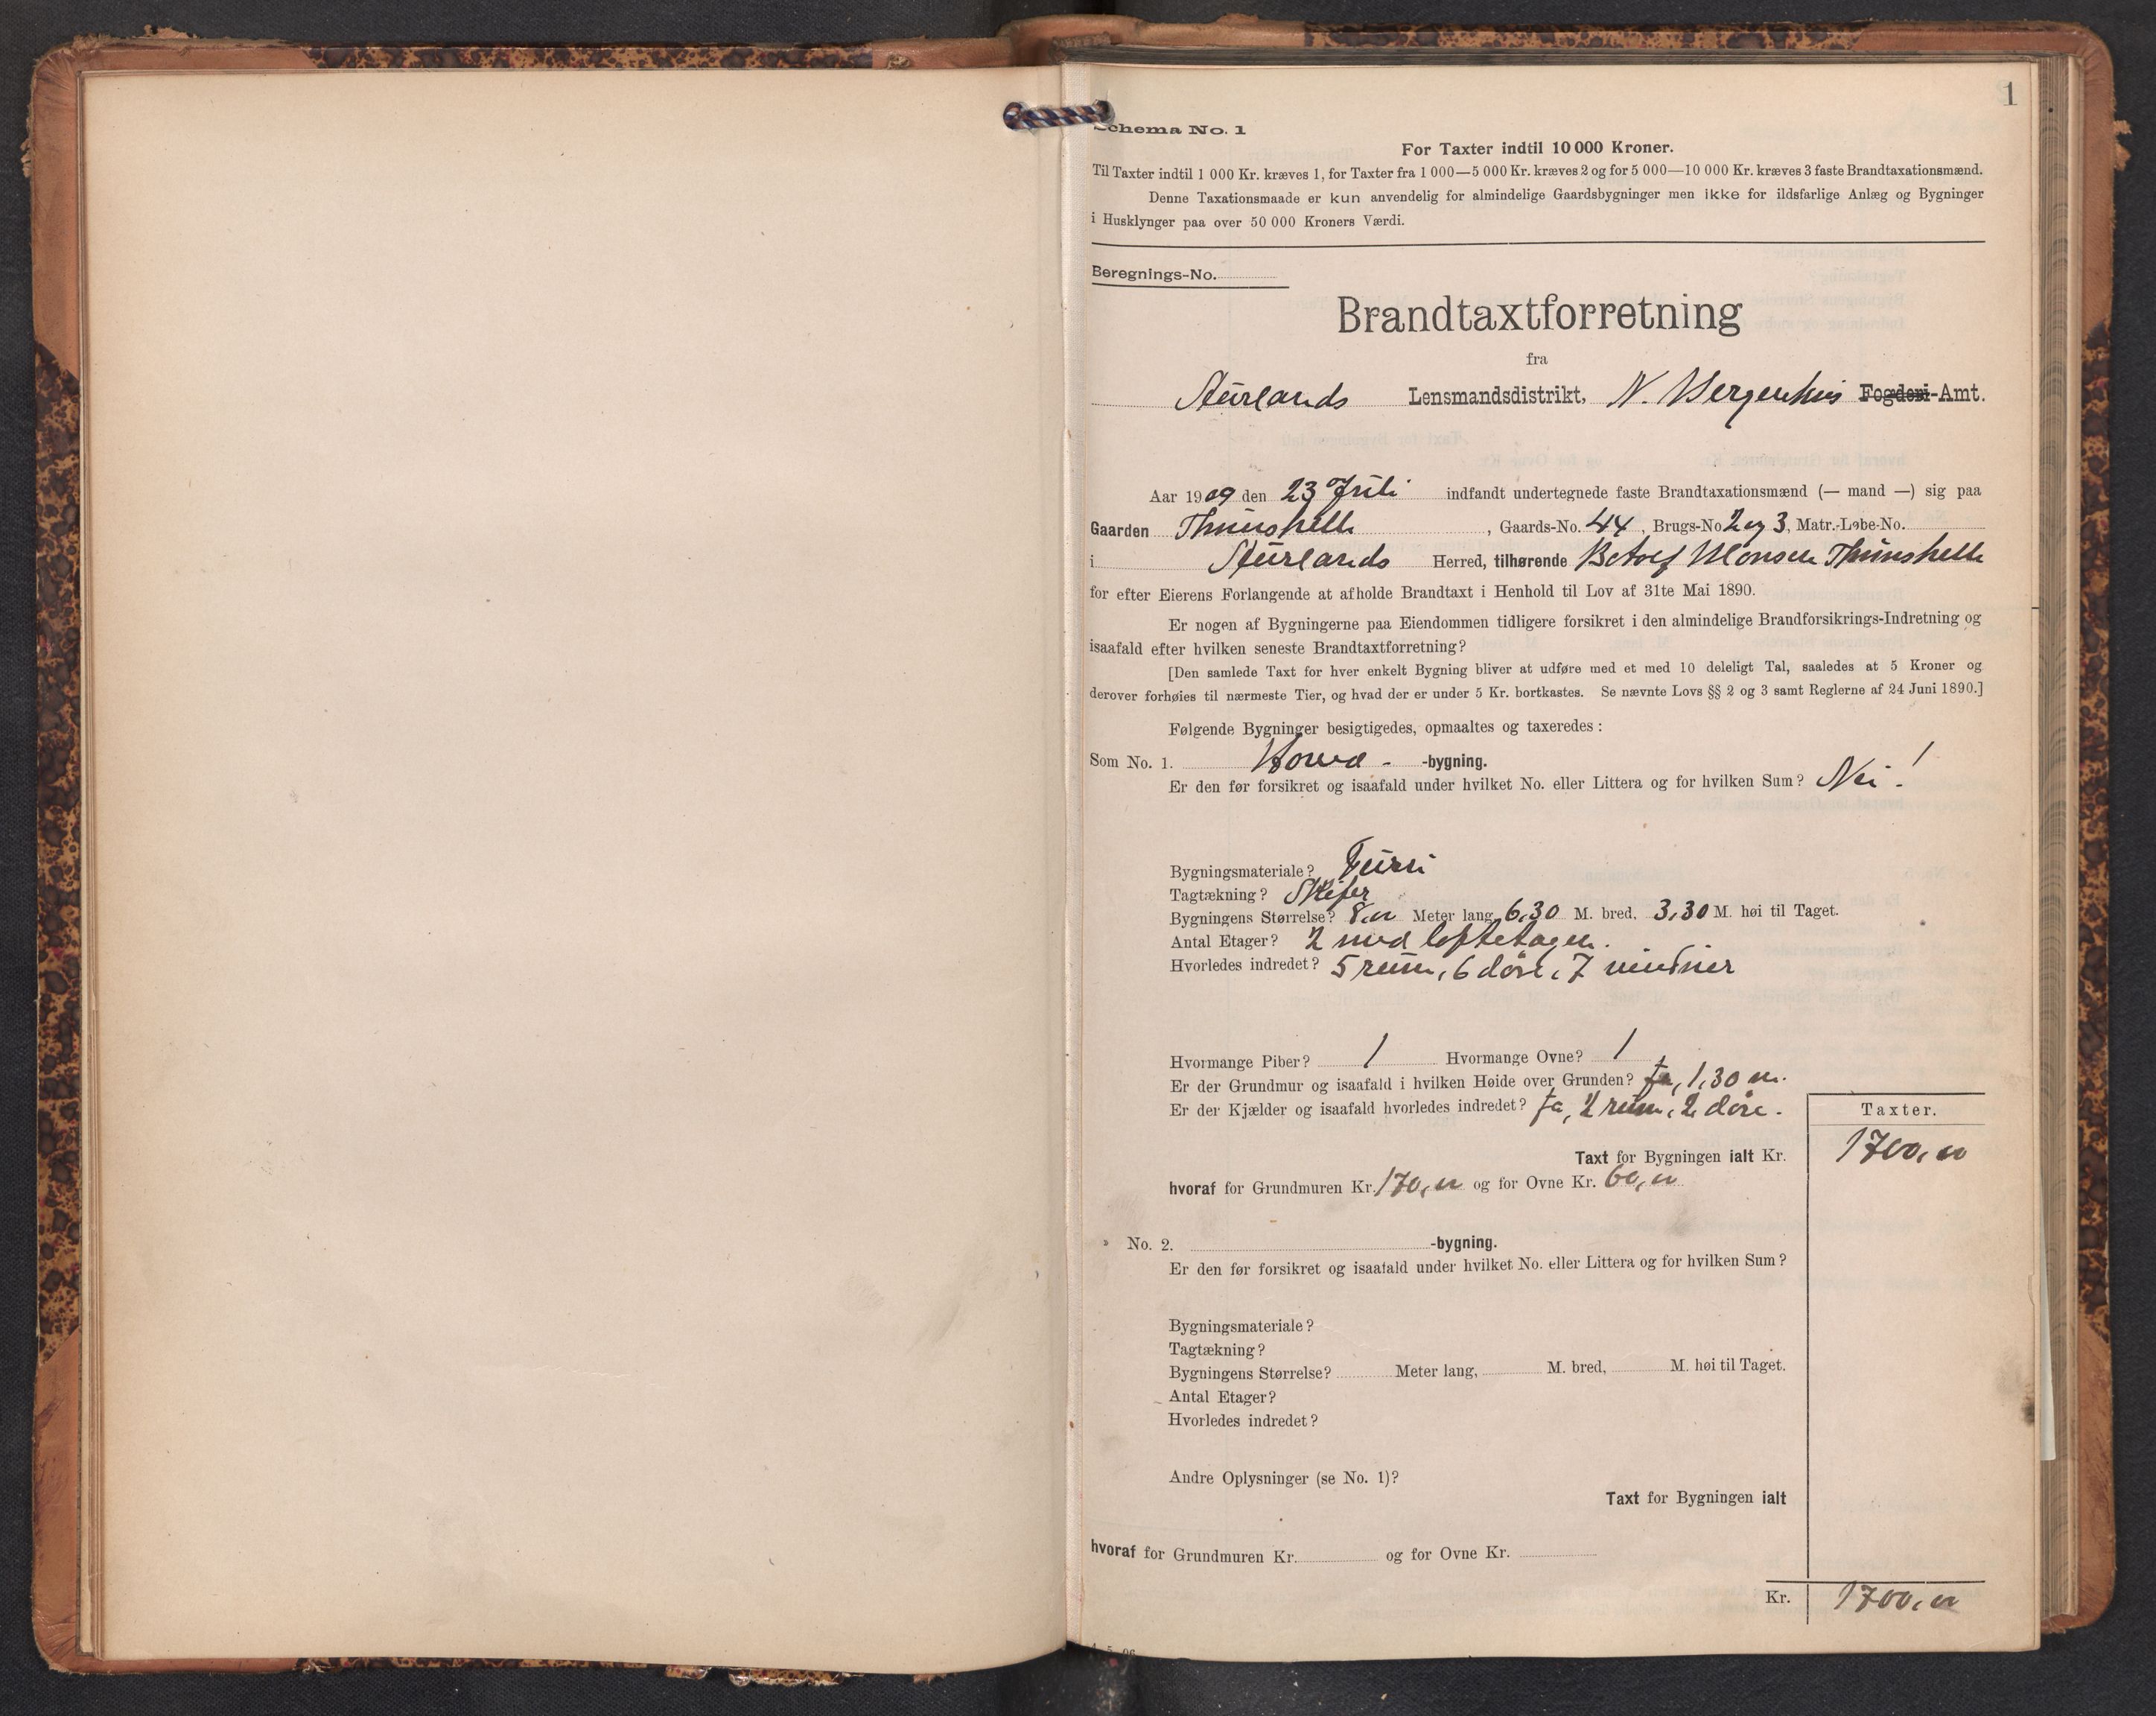 1
Schema No. 1
For Taxter indtil 10 000 Kroner.
Til Taxter indtil 1 000 Kr. kræves 1, for Taxter fra 1 000—5 000 Kr. kræves 2 og for 5 000—10 000 Kr. kræves 3 faste Brandtaxationsmænd.
Denne Taxationsmaade er kun anvendelig for almindelige Gaardsbygninger men ikke for ildsfarlige Anlæg og Bygninger
i Husklynger paa over 50 000 Kroners Værdi.
Beregnings-No.
Brandtaxtforretning
fra
Aurlands Lensmandsdistrikt, N. Bergenhus Fogderi-Amt.
Aar 1909 den 23 Juli indfandt undertegnede faste Brandtaxationsmænd (— mand —) sig paa
Gaarden Thunshelle, Gaards-No. 44, Brugs-No 2 og 3, Matr.-Løbe-No.
i Aurlands Herred, tilhørende Botolf Monsen Thunshelle
for efter Eierens Forlangende at afholde Brandtaxt i Henhold til Lov af 31te Mai 1890.
Er nogen af Bygningerne paa Eiendommen tidligere forsikret i den almindelige Brandforsikrings-Indretning og
isaafald efter hvilken seneste Brandtaxtforretning?
[Den samlede Taxt for hver enkelt Bygning bliver at udføre med et med 10 deleligt Tal, saaledes at 5 Kroner og
derover forhøies til nærmeste Tier, og hvad der er under 5 Kr. bortkastes. Se nævnte Lovs §§ 2 og 3 samt Reglerne af 24 Juni 1890.]
Følgende Bygninger besigtigedes, opmaaltes og taxeredes :
Som No. 1. Hoved- -bygning.
Er den før forsikret og isaafald under hvilket No. eller Littera og for hvilken Sum? Nei!
Bygningsmateriale? Furu
Tagtækning? Skifer
Bygningens Størrelse? 8,00 Meter lang, 6,30 M. bred, 3,30 M. høi til Taget.
Antal Etager? 2 med loftetagen.
Hvorledes indredet? 5 rum, 6 døre, 7 vinduer
Hvormange Piber? 1 Hvormange Ovne? 1
Er der Grundmur og isaafald i hvilken Høide over Grunden? Ja, 1,30 m.
Er der Kjælder og isaafald hvorledes indredet? Ja, 2 rum, 2 døre.
Taxter.
Taxt for Bygningen ialt Kr. 1700,00
hvoraf for Grundmuren Kr. 170,00 og for Ovne Kr. 60,00
» No. 2. -bygning.
Er den før forsikret og isaafald under hvilket No. eller Littera og for hvilken Sum?
Bygningsmateriale?
Tagtækning?
Bygningens Størrelse? Meter lang, M. bred, M. høi til Taget.
Antal Etager?
Hvorledes indredet?
Andre Oplysninger (se No. 1)?
Taxt for Bygningen ialt
hvoraf for Grundmuren Kr. og for Ovne Kr.
Kr. 1700,00